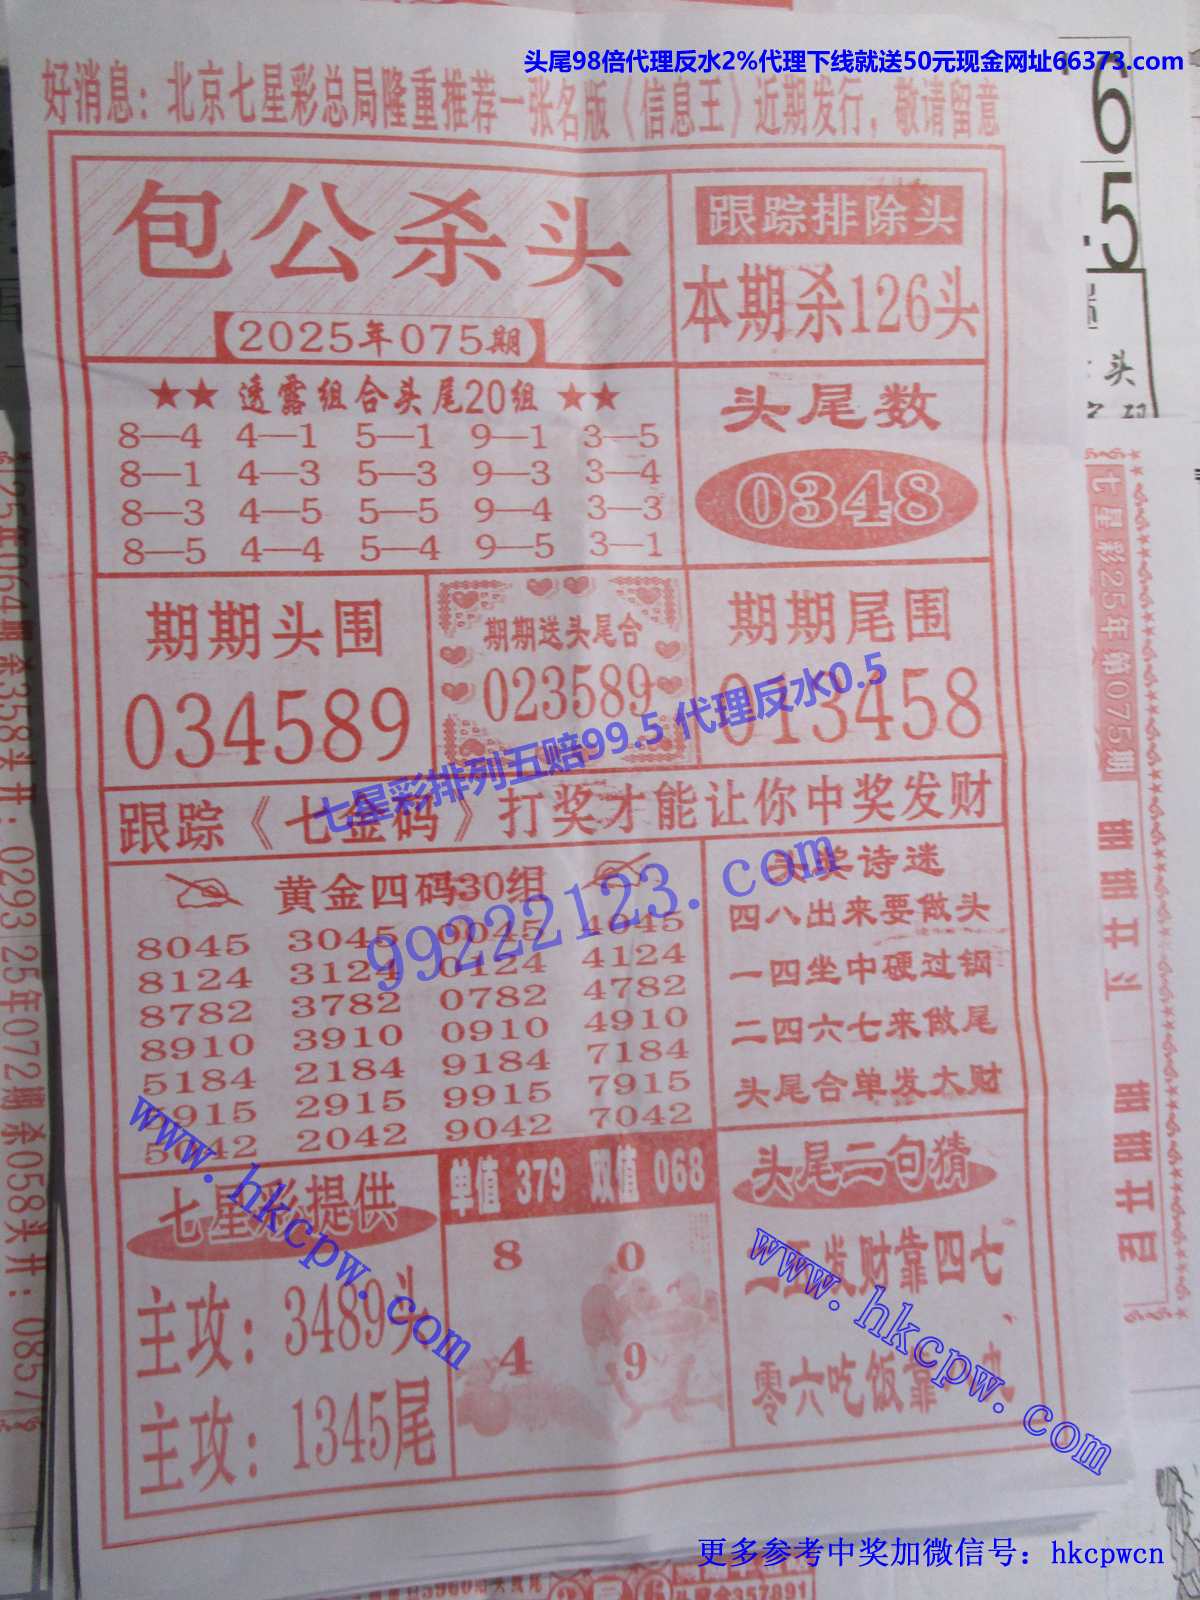 头尾98倍代理反水2%代理下线就送50元现金网址66373.com
好消息：北京七星彩总局隆重推荐一张名版《信息王》近期发行，敬请留意
包公杀头
【2025年075期】
跟踪排除头
本期杀126头
★★ 透露组合头尾20组 ★★
8—4 4—1 5—1 9—1 3—5
8—1 4—3 5—3 9—3 3—4
8—3 4—5 5—5 9—4 3—3
8—5 4—4 5—4 9—5 3—1
头尾数
0348
期期头围
034589
期期送头尾合
023589
期期尾围
013458
七星彩排列五赔99.5 代理反水0.5
跟踪《七金码》打奖才能让你中奖发财
99222123.com
黄金四码30组
8045 3045 9045 4045
8124 3124 0124 4124
8782 3782 0782 4782
8910 3910 0910 4910
5184 2184 9184 7184
5915 2915 9915 7915
5042 2042 9042 7042
头奖诗迷
四八出来要做头
一四坐中硬过钢
二四六七来做尾
头尾合单发大财
www.hkcpw.com
七星彩提供
主攻：3489头
主攻：1345尾
单值 379 双值 068
8 0
4 9
头尾二句猜
二五发财靠四七
零六吃饭靠
www.hkcpw.com
更多参考中奖加微信号：hkcpwcn
6
.5
头
七星彩25年第075期
25年064期杀358头开：0293 25年072期杀058头开：0857
357891